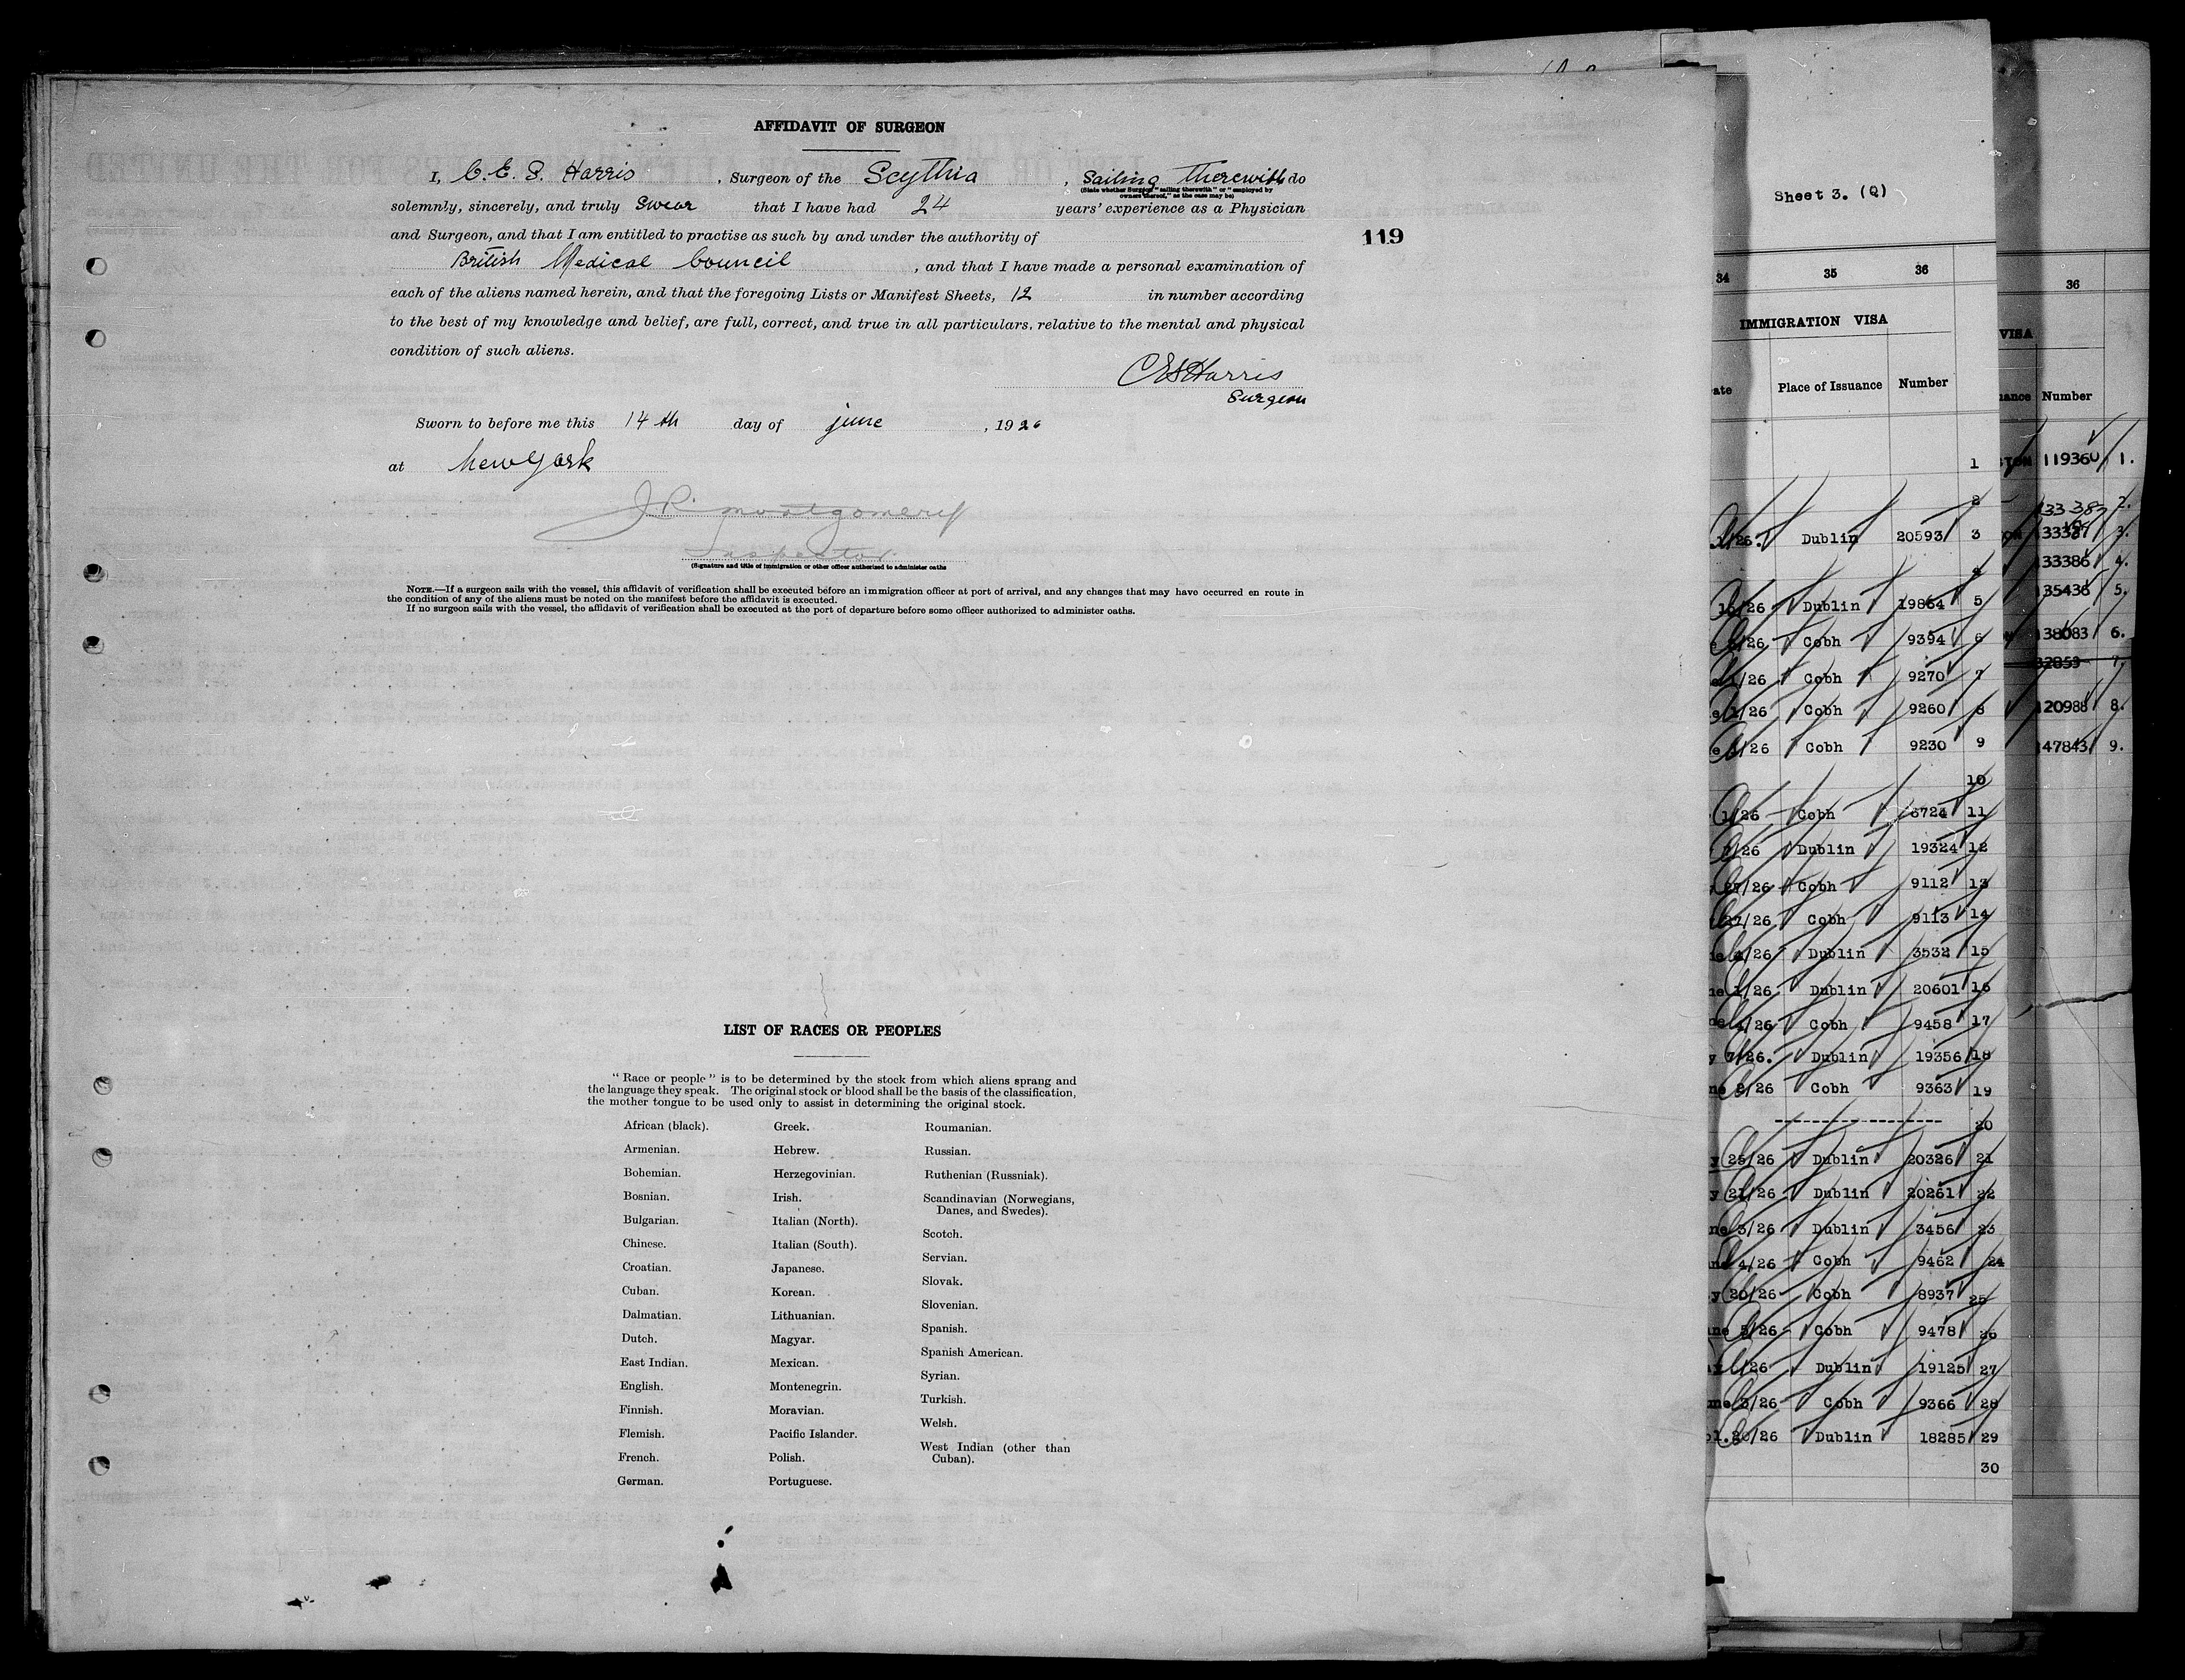 AFFIDAVIT OF SURGEON
I, C. E. S. Harris, Surgeon of the Scythia, Sailing therewith do
(State whether Surgeon "sailing therewith" or "employed by
owners thereof," as the case may be)
solemnly, sincerely, and truly swear that I have had 24 years' experience as a Physician
and Surgeon, and that I am entitled to practise as such by and under the authority of
British Medical Council, and that I have made a personal examination of
each of the aliens named herein, and that the foregoing Lists or Manifest Sheets, 12 in number according
to the best of my knowledge and belief, are full, correct, and true in all particulars, relative to the mental and physical
condition of such aliens.
CES Harris
Surgeon
Sworn to before me this 14th day of june, 1926
at New York
J R Montgomery
Inspector
(Signature and title of immigration or other officer authorized to administer oaths
NOTE.—If a surgeon sails with the vessel, this affidavit of verification shall be executed before an immigration officer at port of arrival, and any changes that may have occurred en route in
the condition of any of the aliens must be noted on the manifest before the affidavit is executed.
If no surgeon sails with the vessel, the affidavit of verification shall be executed at the port of departure before some officer authorized to administer oaths.
119
LIST OF RACES OR PEOPLES
"Race or people" is to be determined by the stock from which aliens sprang and
the language they speak. The original stock or blood shall be the basis of the classification,
the mother tongue to be used only to assist in determining the original stock.
African (black).
Armenian.
Bohemian.
Bosnian.
Bulgarian.
Chinese.
Croatian.
Cuban.
Dalmatian.
Dutch.
East Indian.
English.
Finnish.
Flemish.
French.
German.
Greek.
Hebrew.
Herzegovinian.
Irish.
Italian (North).
Italian (South).
Japanese.
Korean.
Lithuanian.
Magyar.
Mexican.
Montenegrin.
Moravian.
Pacific Islander.
Polish.
Portuguese.
Roumanian.
Russian.
Ruthenian (Russniak).
Scandinavian (Norwegians,
Danes, and Swedes).
Scotch.
Servian.
Slovak.
Slovenian.
Spanish.
Spanish American.
Syrian.
Turkish.
Welsh.
West Indian (other than
Cuban).
Sheet 3. (Q)
34 35 36
IMMIGRATION VISA
ate Place of Issuance Number
1
2
1/26. Dublin 20593 3
4
10/26 Dublin 19864 5
/26 Cobh 9394 6
1/26 Cobh 9270 7
1/26 Cobh 9260 8
/26 Cobh 9230 9
10
1/26 Cobh 6724 11
/26 Dublin 19324 12
27/26 Cobh 9112 13
27/26 Cobh 9113 14
4/26 Dublin 3532 15
ne 1/26 Dublin 20601 16
ne 4/26 Cobh 9458 17
y 7/26. Dublin 19356 18
ne 2/26 Cobh 9363 19
-------------------- 20
y 25/26 Dublin 20326 21
y 21/26 Dublin 20261 22
ne 3/26 Dublin 3456 23
ne 4/26 Cobh 9462 24
y 20/26 Cobh 8937 25
ne 5/26 Cobh 9478 26
1/26 Dublin 19125 27
ne 3/26 Cobh 9366 28
20/26 Dublin 18285 29
30
36
VISA
ance Number
119360 1.
2.
3.
133386 4.
135436 5.
138083 6.
32853 7.
120988 8.
147843 9.